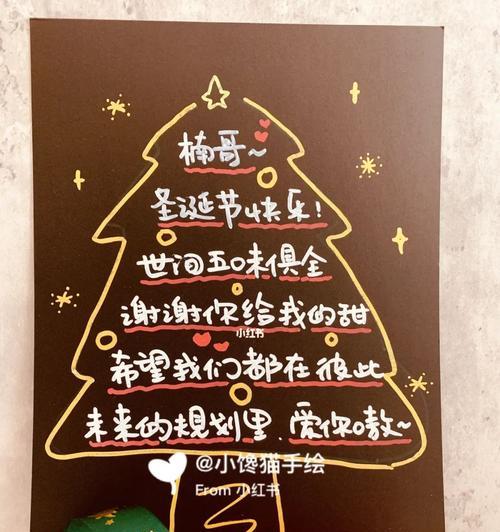 楠哥~
圣诞节快乐!
世间五味俱全
谢谢你给我的甜
小红书
希望我们都在彼此
未来的规划里.爱你嗷~
@小馋猫手绘
From 小红书